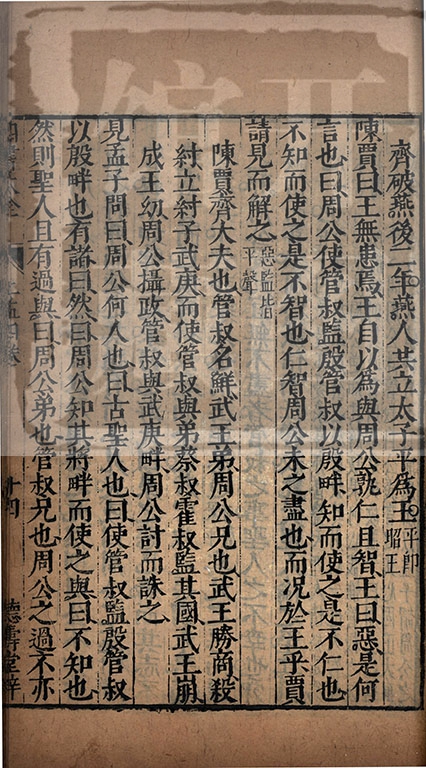 齊破燕後二年燕人共立太子平為王平即昭王
陳賈曰王無患焉王自以為與周公孰仁且智王曰惡是何
言也曰周公使管叔監殷管叔以殷畔知而使之是不仁也
不知而使之是不智也仁智周公未之盡也而况於王乎賈
請見而解之惡監皆平聲
陳賈齊大夫也管叔名鮮武王弟周公兄也武王勝商殺
紂立紂子武庚而使管叔與弟蔡叔霍叔監其國武王崩
成王幼周公攝政管叔與武庚畔周公討而誅之
見孟子問曰周公何人也曰古聖人也曰使管叔監殷管叔
以殷畔也有諸曰然曰周公知其將畔而使之與曰不知也
然則聖人且有過與曰周公弟也管叔兄也周公之過不亦
十四
德壽堂梓